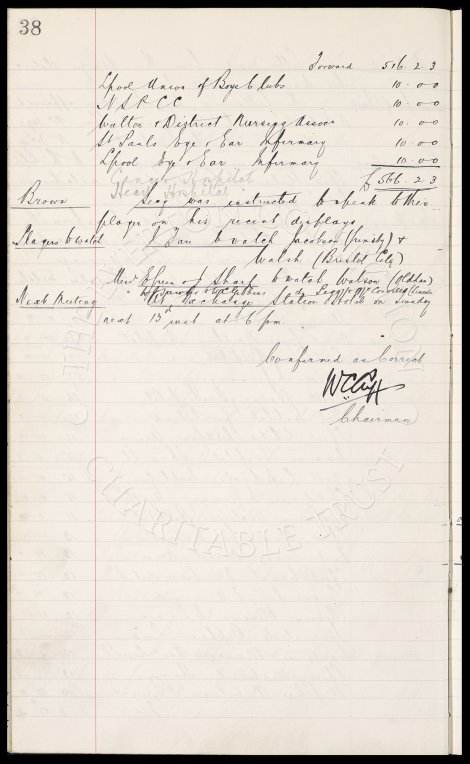 38
Forward 516. 2. 3
Lpool Union of Boys Clubs 10. 0 0
N S P C C 10. 0 0
Walton & District Nursing Assoc. 10. 0 0
St Pauls Eye & Ear Infirmary 10. 0 0
Lpool Eye & Ear Infirmary 10. 00
Cancer Hospital £566. 2. 3
Heart Hospital
Brown Secy was instructed to speak to this
player on his recent displays
Players to watch J Farr to watch Jacobson (Grimsby) &
Walsh (Bristol City)
Mess E Green & J Sharp to watch Watson (Oldham)
Next Meeting Exchange Station Hotel on Sunday
next 13th inst at 6 pm.
Confirmed as Correct
W C Cuff
Chairman
CHARITABLE TRUST